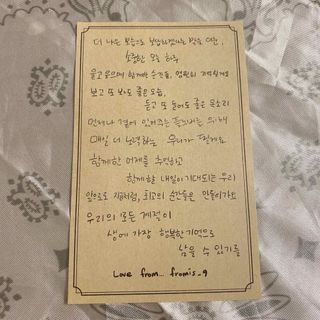 더 나은 모습으로 보답하겠다는 말을 대신,
소중한 오늘 하루
울고 웃으며 함께한 순간들, 영원히 기억할게요
보고 또 봐도 좋은 모습,
듣고 또 들어도 좋은 목소리
언제나 곁에 있어주는 플로버를 위해
매일 더 노력하는 우리가 될게요
함께한 어제를 추억하고
함께할 내일이 기대되는 우리
앞으로도 지금처럼, 최고의 순간들을 만들어가요
우리의 모든 계절이
생에 가장 행복한 기억으로
남을 수 있기를
Love from... fromis_9